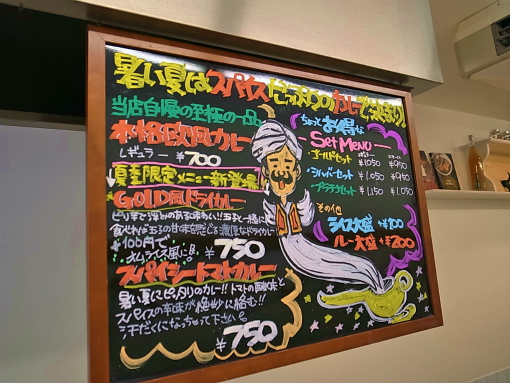 暑い夏はスパイスたっぷりのカレーで決まり!
当店自慢の至極の一品
本格欧風カレー
レギュラー ¥700
夏季限定メニュー新登場!!
GOLD風ドライカレー
ピリ辛と深みのある味わい!!玉子と一緒に
食べれば玉子の甘味も感じる濃厚なドライカレー
+100円で
オムライス風に!
¥750
スパイシートマトカレー
暑い夏にピッタリのカレー!!トマトの酸味と
スパイスの辛味が絶妙に絡む!!
汗だくになっちゃって下さい
¥750
ちょっとお得な
Set Menu
ゴールドセット ¥1050 ¥950
シルバーセット ¥1.050 ¥950
プラチナセット ¥1,150 ¥1.050
その他
ライス大盛 +¥100
ルー大盛 +¥200